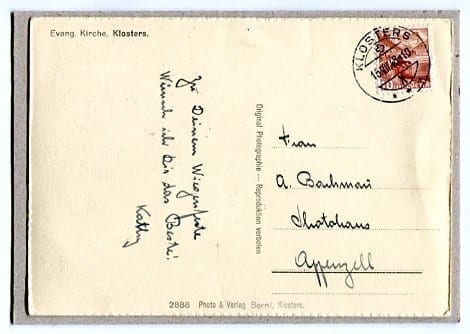 Evang. Kirche, Klosters.
KLOSTERS
Zu Deinem Wiegenfeste
Wünsch ich Dir das Beste!
Kathy
Original Photographie — Reproduktion verboten
Frau
A. Bachmann
Photohaus
Appenzell
2888 Photo & Verlag Berni, Klosters.